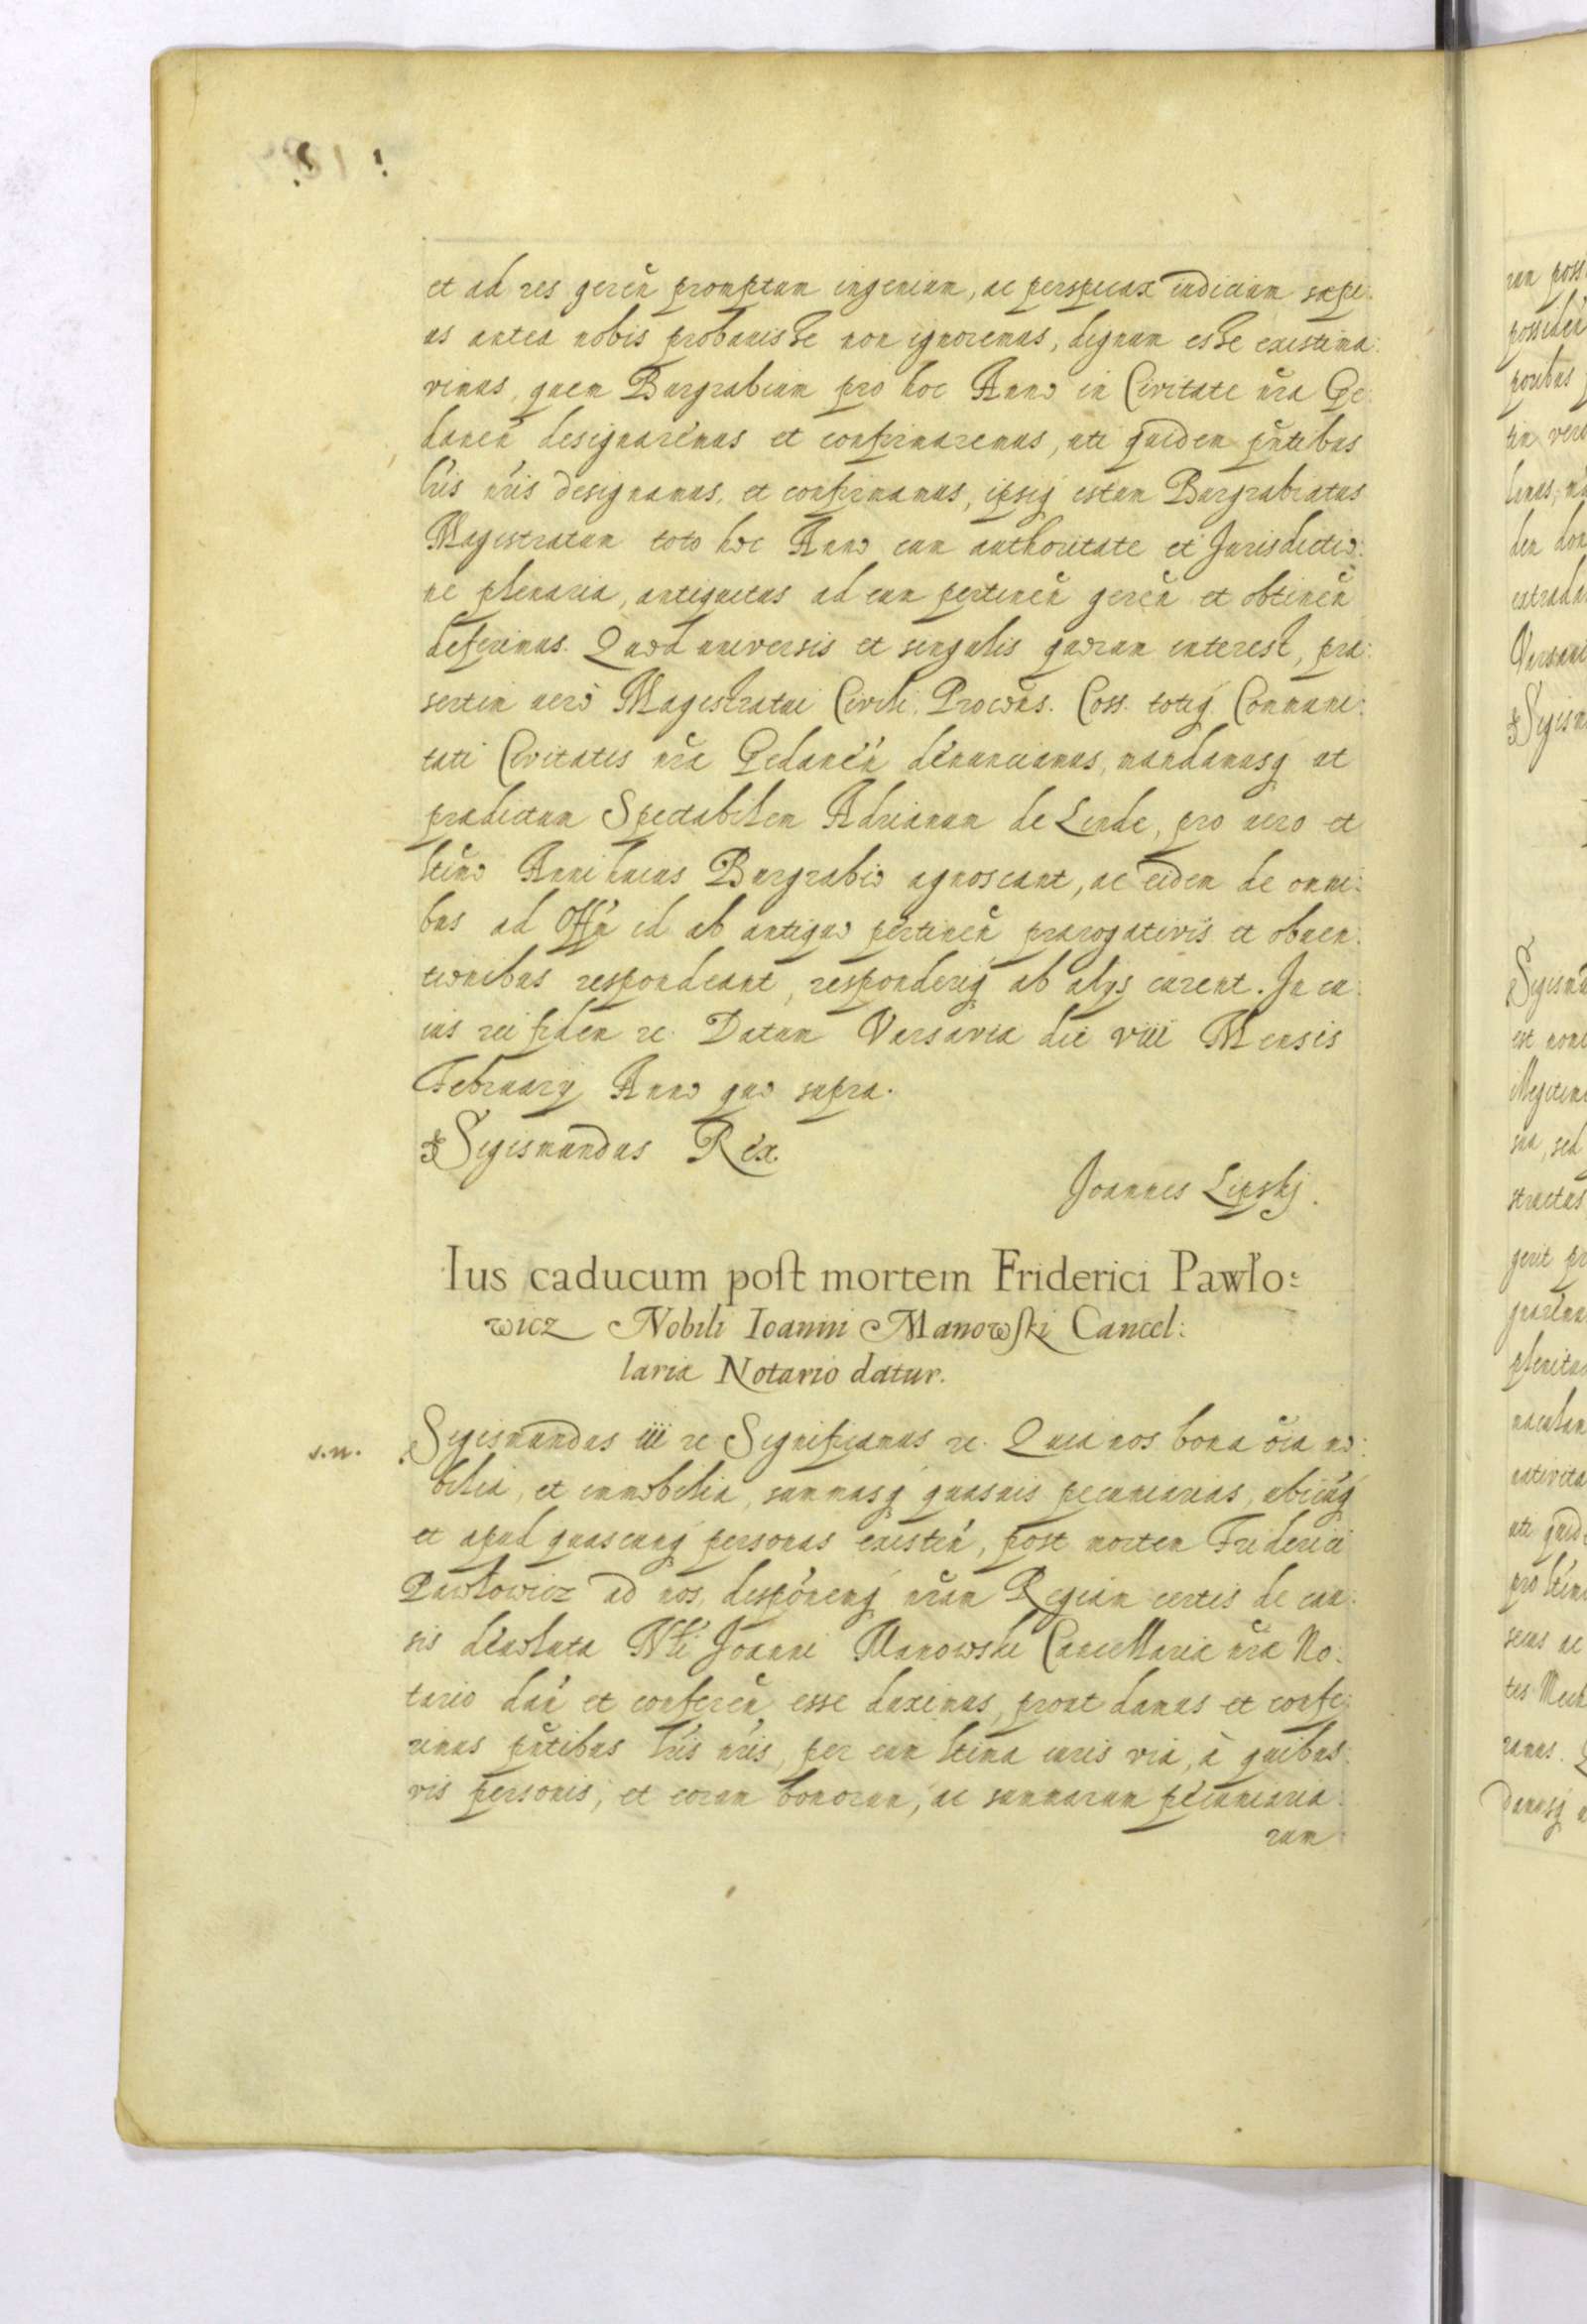 et ad res geren̄ promptum ingenium, ac perspicax iudicium sæpi:
us antea nobis probauisse non ignoremus, dignum esse existima:
vimus, quem Burgrabium pro hoc Anno in Civitate n̄ra Ge:
danen̄ designaremus et confirmaremus, uti quidem pn̄tibus
lr̄is nr̄is designamus, et confirmamus, ipsiq́ istum Burgrabiatus
Magistratum toto hoc Anno cum authoritate et Jurisdictio:
ne plenaria, antiquitus ad eum pertinen̄ geren̄ et obtinen̄
deferimus. Quod universis et singulis quorum interest, præ:
sertim uerò Magistratui Civili, Procōns. Coss. totiq́ Communi:
tati Civitatis nr̄æ Gedanen̄ denunciamus, mandamusq́ ut
prædictum Spectabilem Adrianum de Linde, pro uero et
ltīmo Anni huius Burgrabio agnoscant, ac eidem de omni:
bus ad Off̄m id ab antiquo pertinen̄ prærogativis et obuen:
tionibus respondeant, responderiq́ ab alijs curent. In cu:
ius rei fidem ꝛc. Datum Varsaviæ die viii Mensis
Februarij Anno quo supra.
Sigismundus Rex.
Joannes Lipskj.
Ius caducum post mortem Friderici Pawło:
wicz Nobili Ioanni Manowski Cancel:
lariæ Notario datur.
s.n. Sigismundus iii ꝛc Significamus ꝛc. Quia nos bona ōia mo:
bilia, et immobilia, summasq́ quasuis pecuniarias, ubicuq́
et apud quascunq́ personas existen̄, post mortem Friderici
Pawłowicz ad nos, disponemq́ nr̄am Regiam certis de cau:
sis deuoluta Nbli Joanni Manowski Cancellariæ nr̄æ No:
tario dan̄ et conferen̄ esse duximus, prout damus et confe:
rimus pn̄tibus lr̄is nr̄is, per eum ltīma iuris via, à quibus:
vis personis, et eorum bonorum, ac summarum pecuniaria:
rum